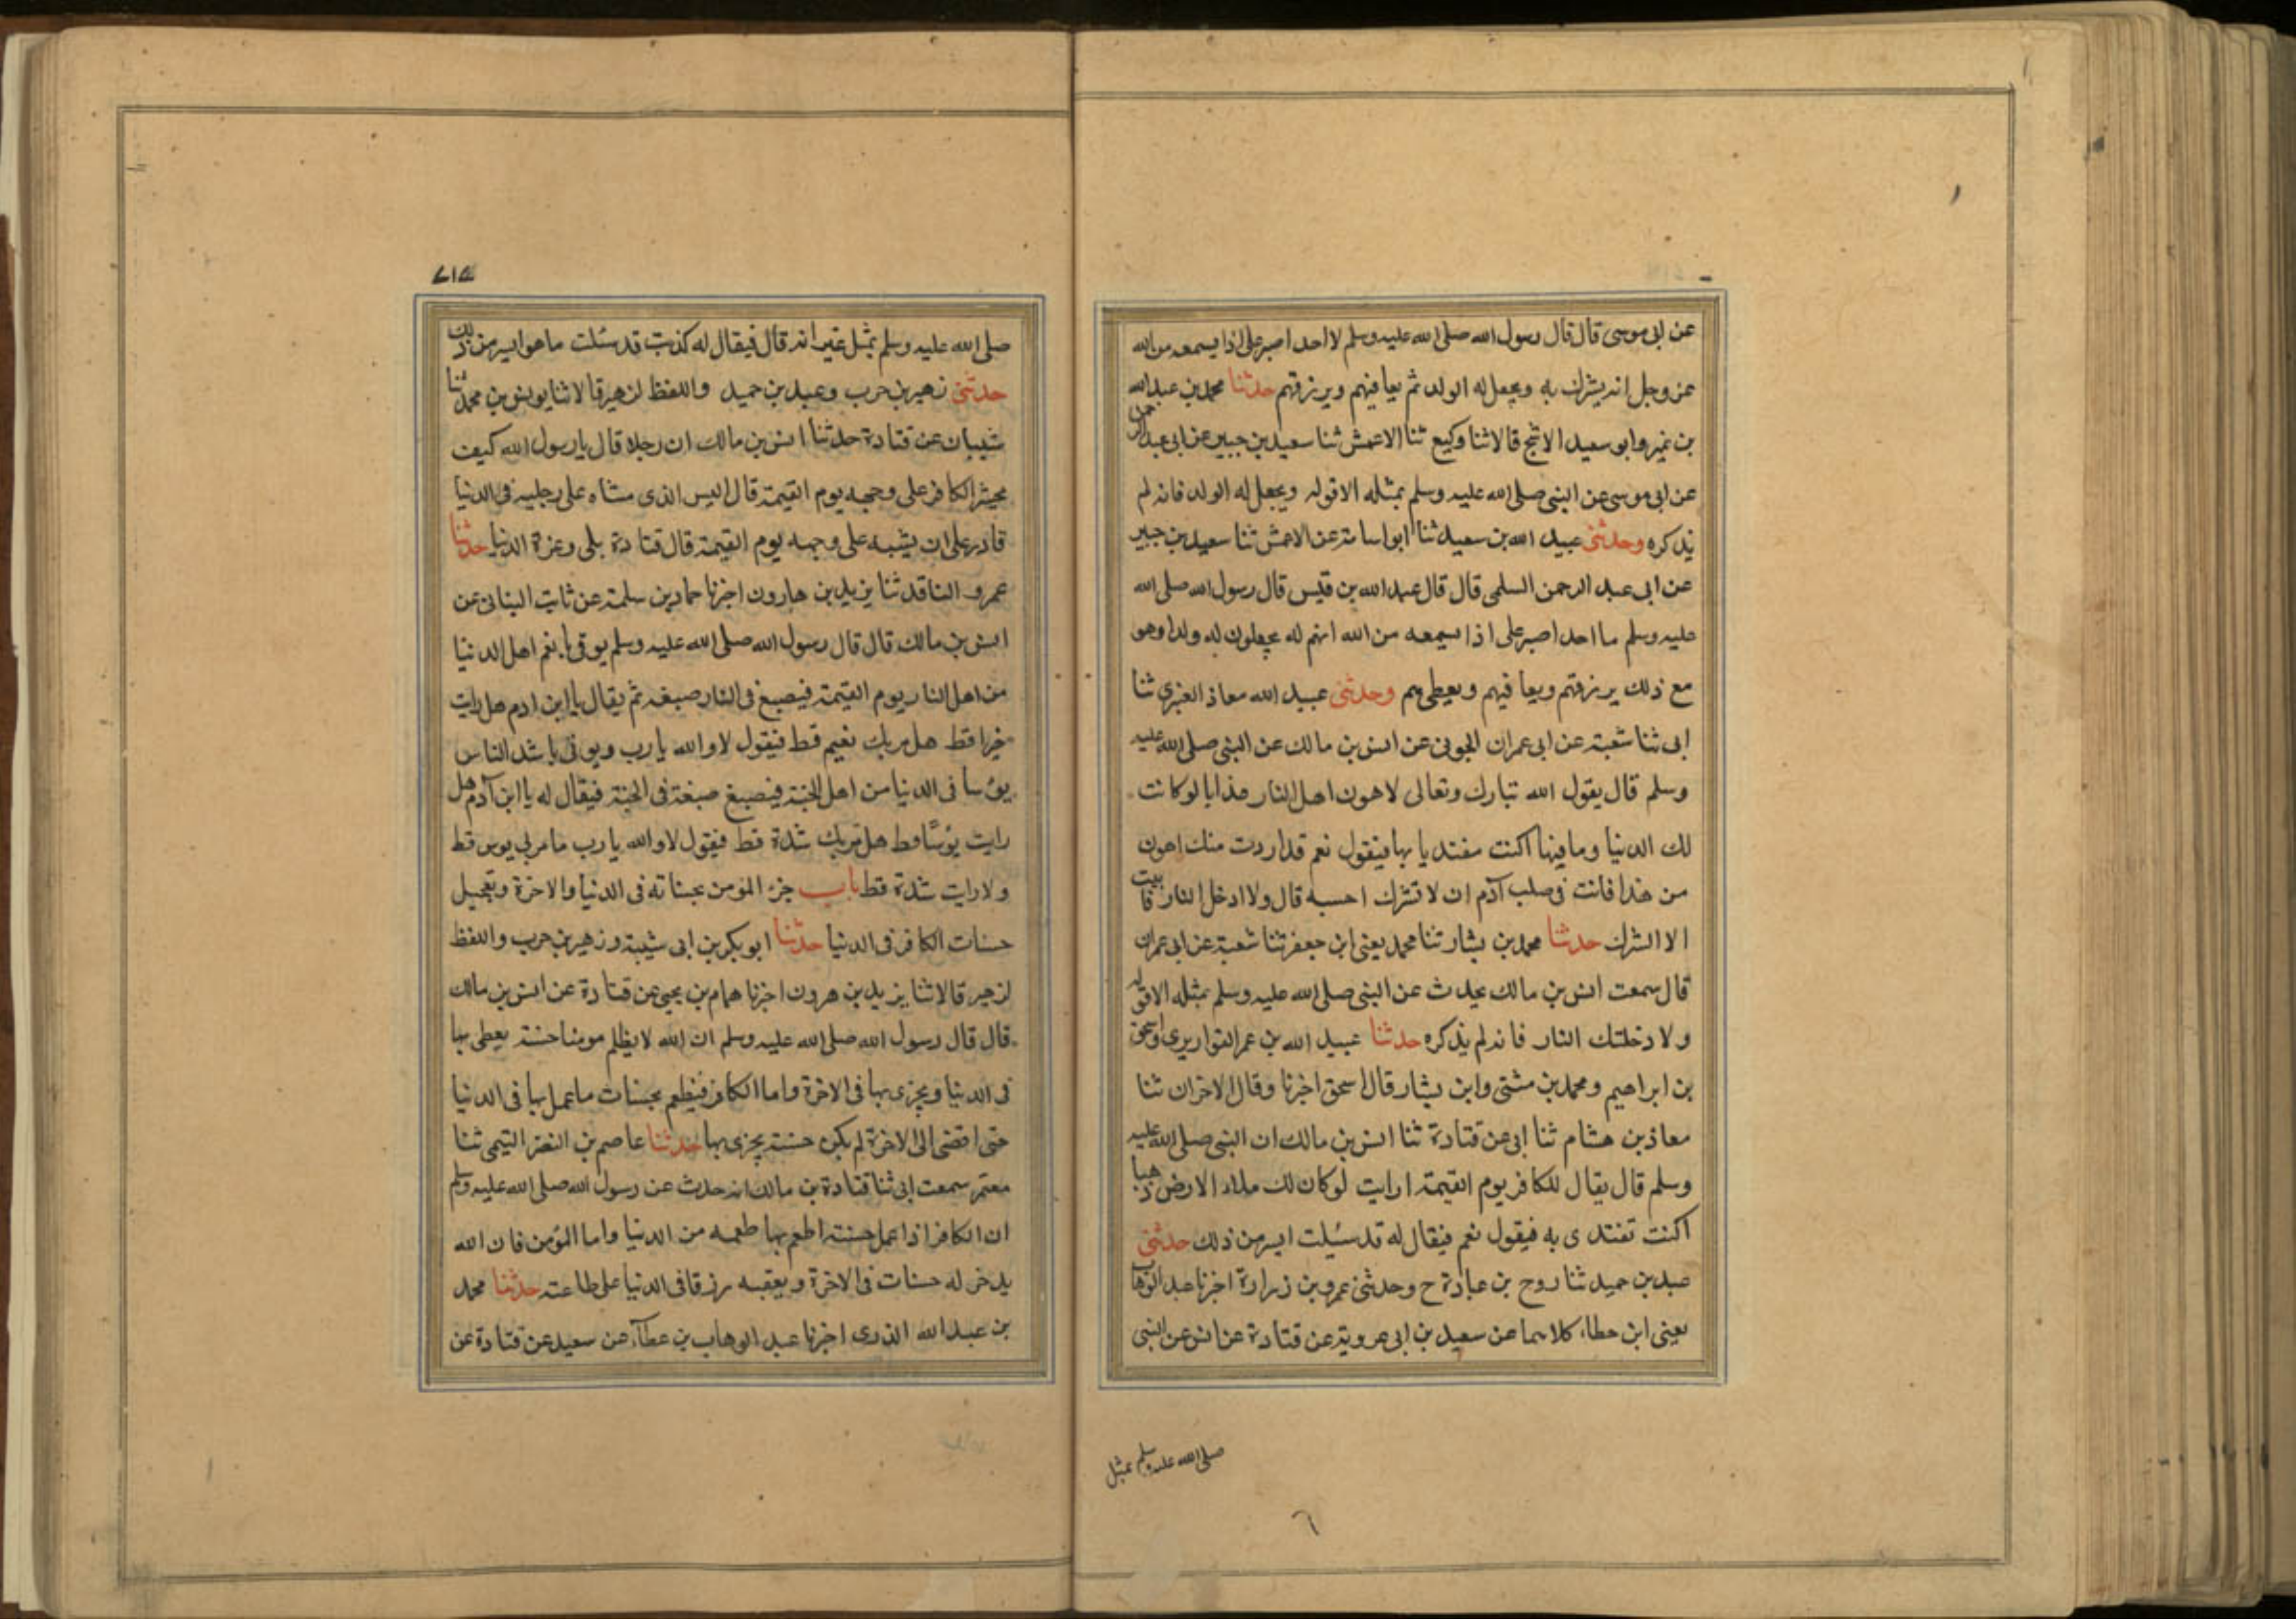 عن ابى موسى قال قال رسول الله صلى الله عليه وسلم لا احد اصبر على اذا يسمعه من الله
عز وجل انه يشرك به ويجعل له الولد ثم يعافيهم ويرزقهم حدثنا محمد بن عبد الله
بن نمير وابو سعيد الاشج قالا ثنا وكيع ثنا الاعمش ثنا سعيد بن جبير عن ابى عبد الرحمن
عن ابى موسى عن النبى صلى الله عليه وسلم بمثله الا قوله ويجعل له الولد فانه لم
يذكره وحدثنى عبيد الله بن سعيد ثنا ابو اسامة عن الاعمش ثنا سعيد بن جبير
عن ابى عبد الرحمن السلمى قال قال عبد الله بن قيس قال رسول الله صلى الله
عليه وسلم ما احد اصبر على اذا يسمعه من الله انهم له يجعلون له ولدا وهو
مع ذلك يرزقهم ويعافيهم ويعطيهم وحدثنى عبيد الله معاذ العنبرى ثنا
ابى ثنا شعبة عن ابى عمران الجونى عن انس بن مالك عن النبى صلى الله عليه
وسلم قال يقول الله تبارك وتعالى لاهون اهل النار عذابا لو كانت
لك الدنيا وما فيها اكنت مفتديا بها فيقول نعم قد اردت منك اهون
من هذا فانت فى صلب آدم ان لا تشرك احسبه قال ولا ادخل النار فابيت
الا الشرك حدثنا محمد بن بشار ثنا محمد يعنى ابن جعفر ثنا شعبة عن ابى عمران
قال سمعت انس بن مالك يحدث عن النبى صلى الله عليه وسلم بمثله الا قوله
ولا دخلتك النار فانه لم يذكره حدثنا عبيد الله بن عمر القواريرى واسحق
بن ابراهيم ومحمد بن مثنى وابن بشار قال اسحق اخبرنا وقال الاخران ثنا
معاذ بن هشام ثنا ابى عن قتادة ثنا انس بن مالك ان النبى صلى الله عليه
وسلم قال يقال للكافر يوم القيمة ارايت لو كان لك ملاء الارض ذهبا
اكنت تفتدى به فيقول نعم فيقال له قد سُيلت ايسر من ذلك حدثنى
عبد بن حميد ثنا روح بن عبادة ح وحدثنى عمرو بن زرارة اخبرنا عبد الوهاب
يعنى ابن عطاء كلاهما عن سعيد بن ابى عروبة عن قتادة عن انس عن النبى
صلى الله عليه وسلم بمثل
٦
صلى الله عليه وسلم بمثل غير انه قال فيقال له كذبت قد سُئلت ما هو ايسر من ذلك
حدثنى زهير بن حرب وعبد بن حميد واللفظ لزهير قالا ثنا يونس بن محمد ثنا
شيبان عن قتادة حدثنا انس بن مالك ان رجلا قال يا رسول الله كيف
يحشر الكافر على وجهه يوم القيمة قال اليس الذى مشاه على رجليه فى الدنيا
قادر على ان يمشيه على وجهه يوم القيمة قال قتادة بلى وعزة الدنيا حدثنا
عمرو الناقد ثنا يزيد بن هارون اخبرنا حماد بن سلمة عن ثابت البنانى عن
انس بن مالك قال قال رسول الله صلى الله عليه وسلم يوتى بانعم اهل الدنيا
من اهل النار يوم القيمة فيصبغ فى النار صبغه ثم يقال يا ابن ادم هل رايت
خيرا قط هل مر بك نعيم قط فيقول لا والله يا رب ويوتى باشد الناس
بؤسا فى الدنيا من اهل الجنة فيصبغ صبغة فى الجنة فيقال له يا ابن آدم هل
رايت بؤسًا قط هل مر بك شدة قط فيقول لا والله يا رب ما مر بى بوس قط
ولا رايت شدة قط باب جزء المؤمن بحسناته فى الدنيا والاخرة وتعجيل
حسنات الكافر فى الدنيا حدثنا ابو بكر بن ابى شيبة وزهير بن حرب واللفظ
لزهير قالا ثنا يزيد بن هرون اخبرنا همام بن يحيى عن قتادة عن انس بن مالك
قال قال رسول الله صلى الله عليه وسلم ان الله لا يظلم مومنا حسنة يعطى بها
فى الدنيا ويجزى بها فى الاخرة واما الكافر فيطعم بحسنات ما عمل بها فى الدنيا
حتى افضى الى الاخرة لم يكن حسنة يجزى بها حدثنا عاصم بن النضر التيمى ثنا
معتمر سمعت ابى ثنا قتادة بن مالك انه حدث عن رسول الله صلى الله عليه وسلم
ان الكافر اذا عمل حسنة اطعم بها طعمه من الدنيا واما المؤمن فان الله
يدخر له حسنات فى الاخرة ويعقبه رزقا فى الدنيا على طاعته حدثنا محمد
بن عبد الله الذرى اخبرنا عبد الوهاب بن عطآء عن سعيد عن قتادة عن